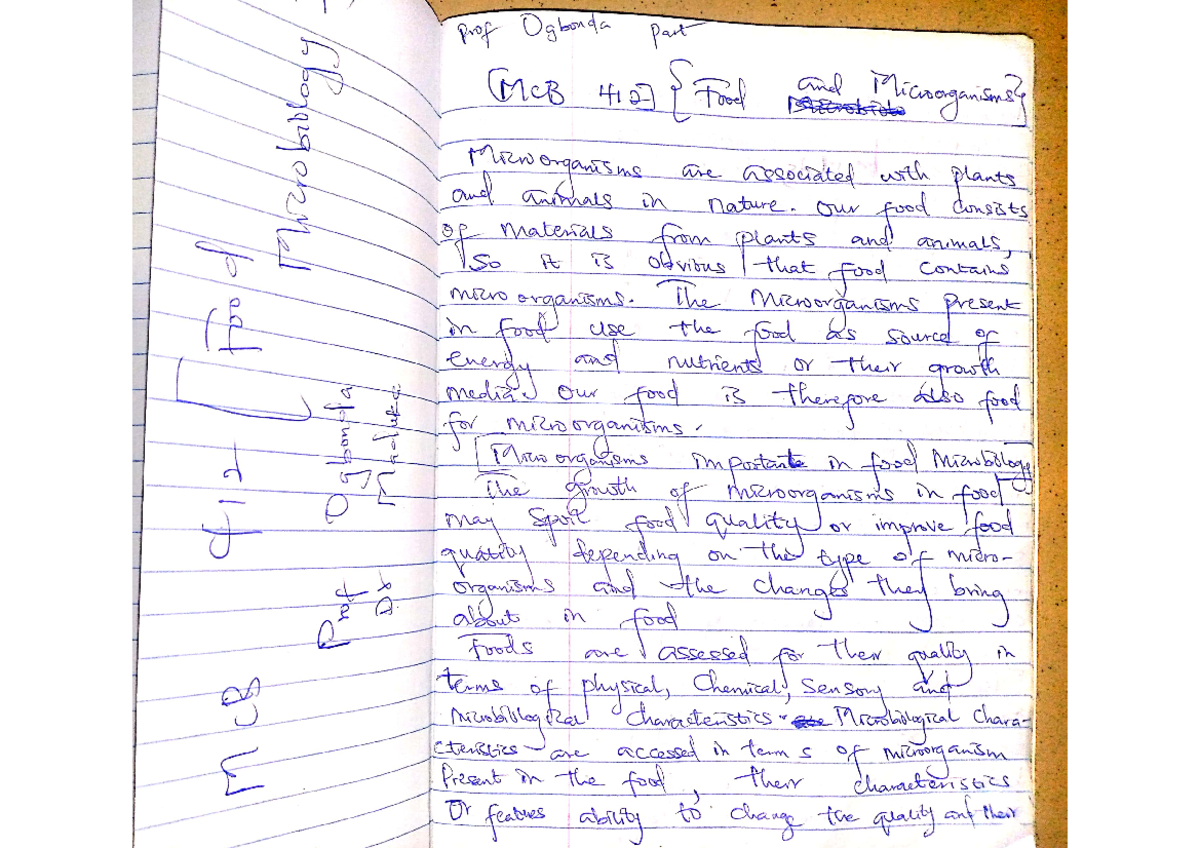 MCB 412 [Food Microbiology
Prof Ogbonda
Dr
Prof Ogbonda part
[MCB 412] {Food and Microorganisms}
Microorganisms are associated with plants
and animals in nature. Our food consists
of materials from plants and animals,
so it is obvious that food contains
micro organisms. The microorganisms present
in food use the food as source of
energy and nutrients or their growth
media. Our food is therefore also food
for microorganisms.
Microorganisms important in food Microbiology
The growth of microorganisms in food
may spoil food quality or improve food
quality depending on the type of micro-
organisms and the changes they bring
about in food
Foods are assessed for their quality in
terms of physical, Chemical, Sensory and
Microbiological characteristics. Microbiological Chara-
cteristics are accessed in terms of microorganism
Present in the food, their characteristics
Or features ability to change the quality and their